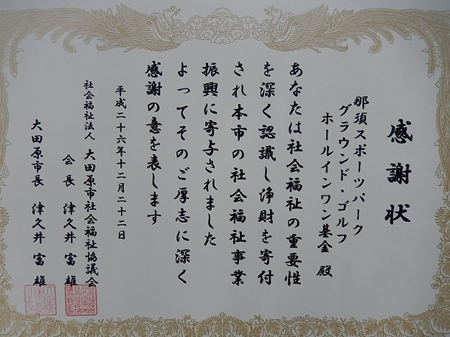 感謝状
那須スポーツパーク
グラウンド・ゴルフ
ホールインワン基金 殿
あなたは社会福祉の重要性
を深く認識し浄財を寄付
され本市の社会福祉事業
振興に寄与されました
よってそのご厚志に深く
感謝の意を表します
平成二十六年十二月二十二日
社会福祉法人 大田原市社会福祉協議会
会長 津久井富雄
大田原市長 津久井富雄